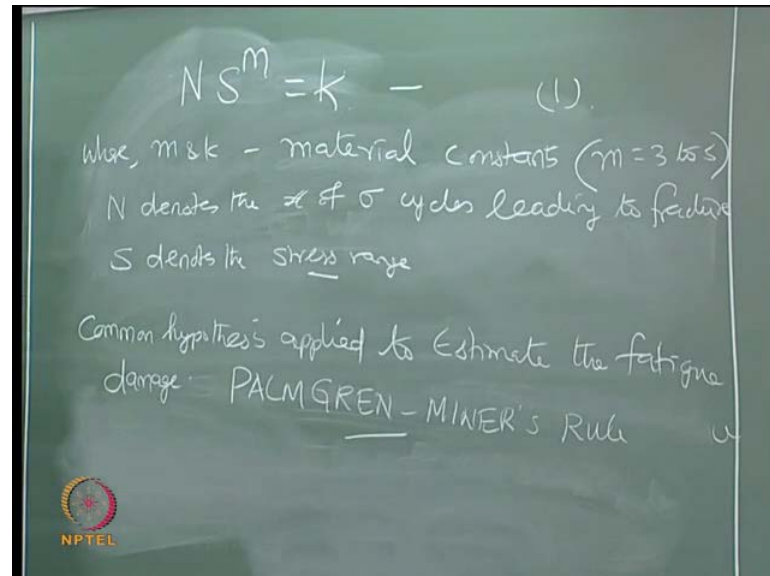 N S^m = k - (1).
where, m & k - material constants (m = 3 to 5)
N denotes the # of σ cycles leading to fracture
S denotes the stress range
Common hypothesis applied to Estimate the fatigue
damage. PALMGREN-MINER'S RULE
NPTEL